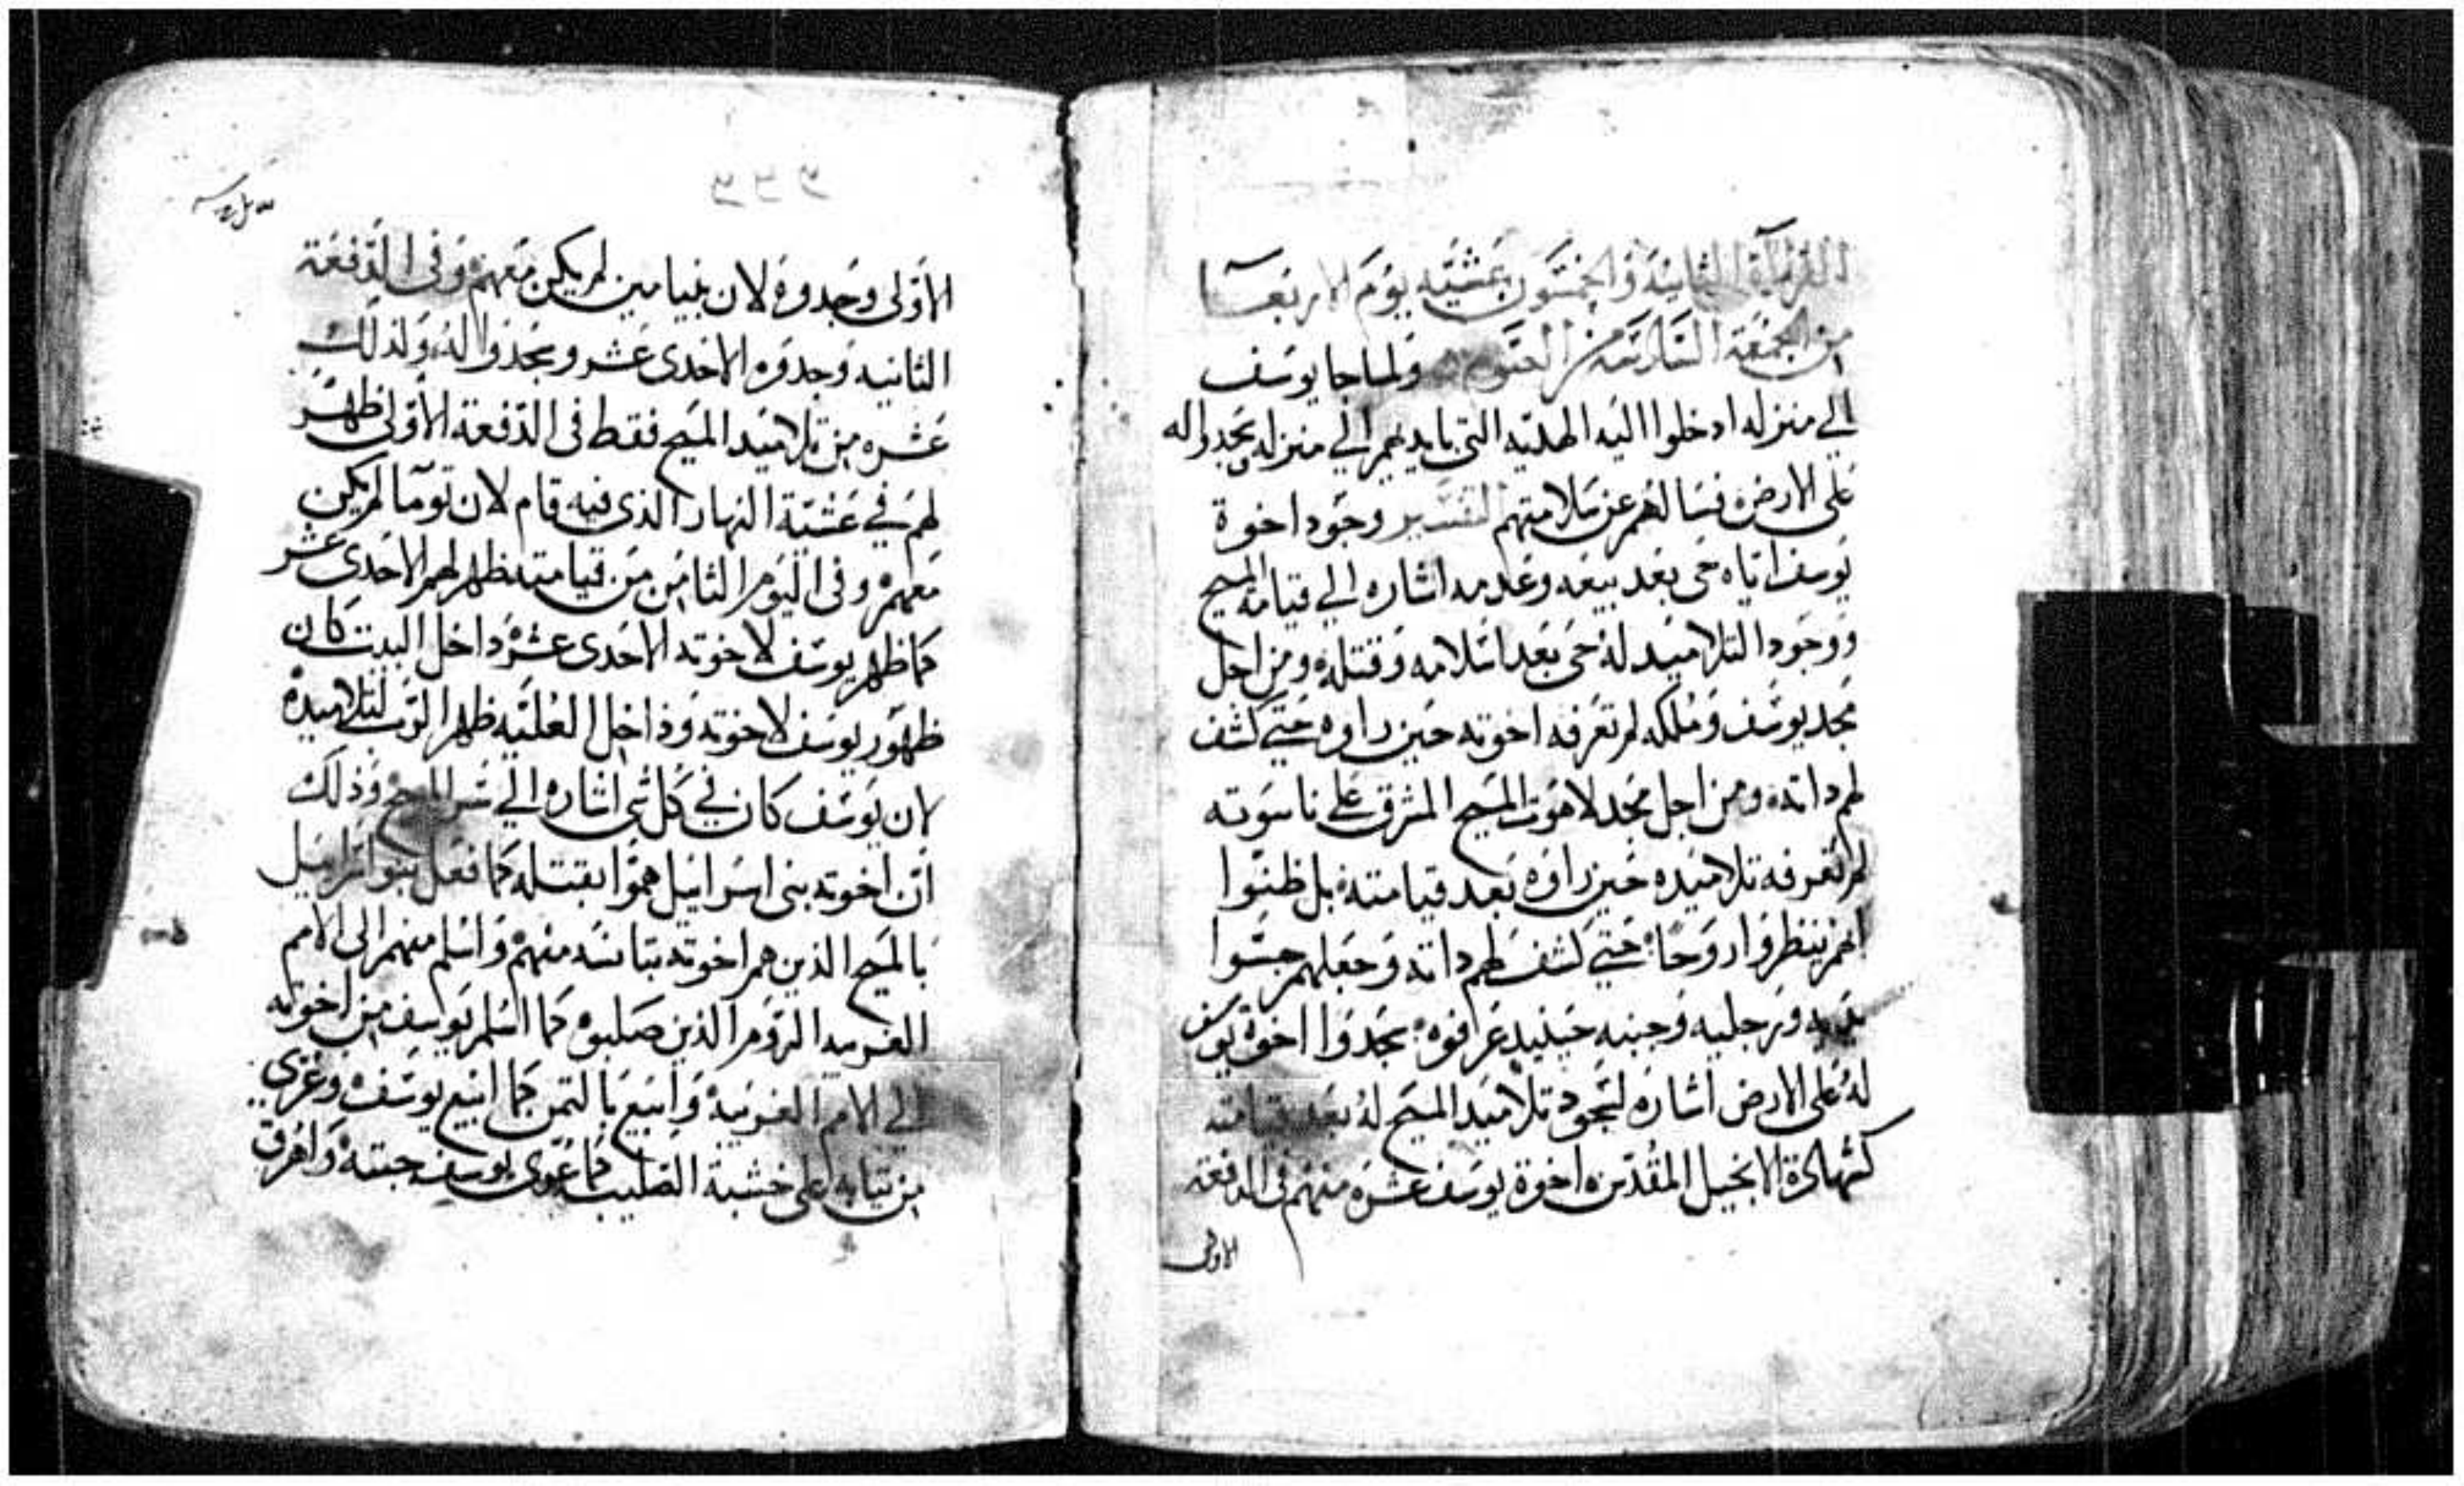 القراة الثانية والخمسون بعشية يوم الاربعا
من الجمعة السادسة من الصوم ولما جا يوسف
الي منزله ادخلوا اليه الهديه التي بايديهم الي منزله وسجدوا له
على الارض فسالهم عن سلامتهم التفسير وجود اخوة
يوسف اياه حى بعد بيعه وعدمه اشاره الي قيامة المسيح
ووجود التلاميد له حى بعد اسلامه وقتله ومن اجل
مجد يوسف وملكه لم تعرفه اخوته حين راوه حتي كشف
لهم داته ومن اجل مجد لاهوت المسيح المشرق على ناسوته
لم تعرفه تلاميده حين راوه بعد قيامته بل ظنوا
انهم ينظروا روحا حتي كشف لهم داته وجعلهم جسوا
يديه ورجليه وجنبه حينيد عرفوه سجدوا اخوة يوسف
له على الارض اشاره لسجود تلاميد المسيح له بعد قيامته
كشهادة الانجيل المقدس اخوة يوسف عشره منهم في الدفعة
الاولى
الاولى وجدوه لان بنيامين لم يكن معهم وفى الدفعة
الثانيه وجدوه الاحدى عشر وسجدوا له ولدلك
عشره من تلاميد المسيح فقط فى الدفعة الاولى ظهر
لهم في عشية النهار الذى فيه قام لان توما لم يكن
معهم وفى اليوم الثامن من قيامته ظهر لهم الاحدى عشر
كما ظهر يوسف لاخوته الاحدى عشر داخل البيت كان
ظهور يوسف لاخوته وداخل العليه ظهر الرب لتلاميده
لان يوسف كان في كل شى اشاره الي سر المسيح وذلك
ان اخوته بنى اسراييل هموا بقتله كما فعل بنوا اسراييل
بالمسيح الذين هم اخوته بتانسه منهم واسلم منهم الى الامم
الغريبه الروم الذين صلبوه كما اسلم يوسف من اخوته
الي الامم الغريبة وابيع بالتمن كما ابيع يوسف وعري
من تيابه على خشبة الصليب كما عرى يوسف جبته واهرق